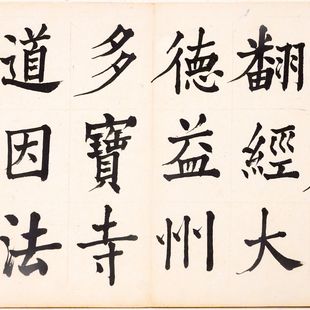 翻經大
德益州
多寶寺
道因法